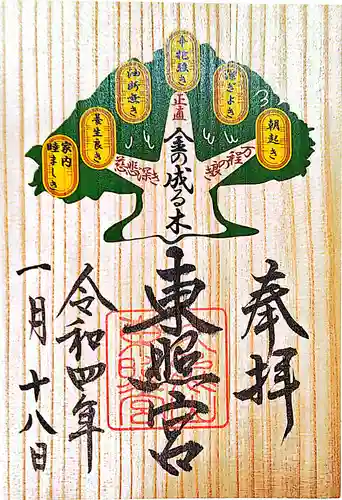 奉拝
朝起き
潔ぎよき
辛抱強き
油断無き
養生良き
家内
睦ましき
正直
慈悲深き
金の成る木
東照宮
令和四年
一月十八日